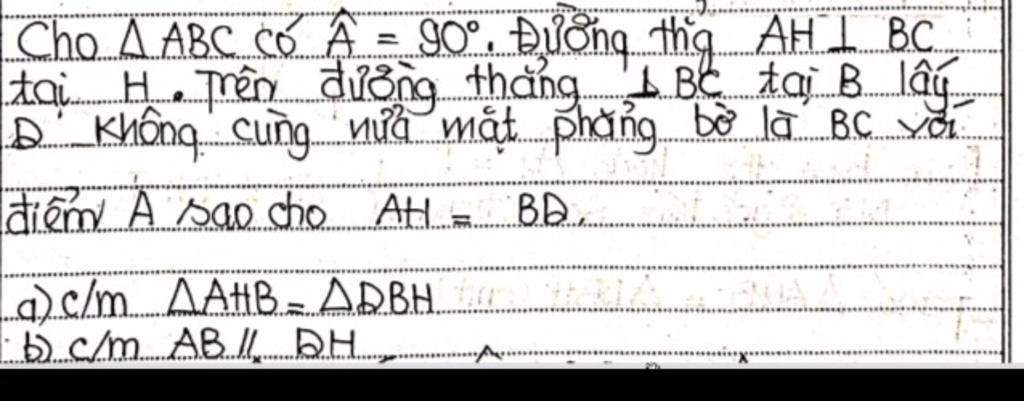 Cho Δ ABC có Â = 90°. Đường thg AH ⊥ BC
tại H. Trên đường thẳng ⊥ BC tại B lấy
D không cùng nửa mặt phẳng bờ là BC với
điểm A sao cho AH = BD.
a) c/m ΔAHB = ΔDBH
b) c/m AB // DH